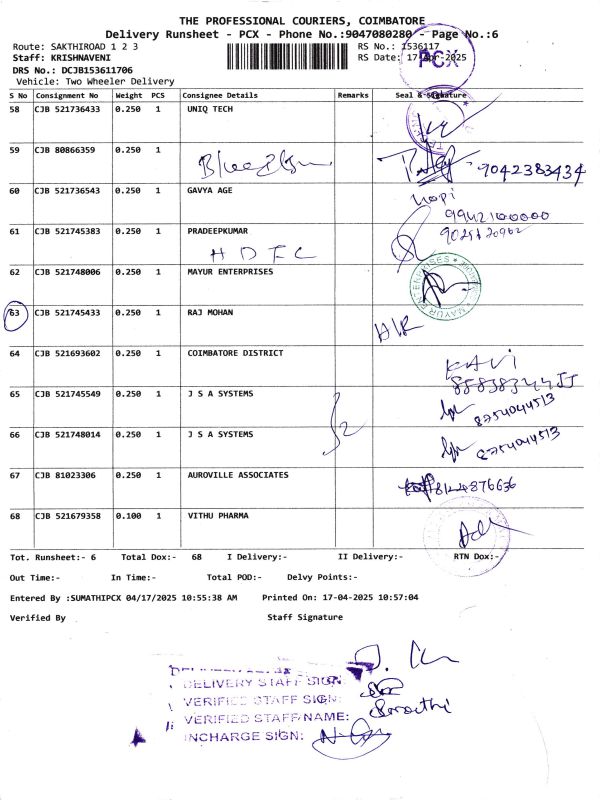 THE PROFESSIONAL COURIERS, COIMBATORE
Delivery Runsheet - PCX - Phone No.:9047080280 - Page No.:6
Route: SAKTHIROAD 1 2 3 RS No.: 1536117
Staff: KRISHNAVENI RS Date: 17-Apr-2025
PCX
DRS No.: DCJB153611706
Vehicle: Two Wheeler Delivery
S No Consignment No Weight PCS Consignee Details Remarks Seal & Signature
58 CJB 521736433 0.250 1 UNIQ TECH
59 CJB 80866359 0.250 1 9042383434
60 CJB 521736543 0.250 1 GAVYA AGE
9942100000
61 CJB 521745383 0.250 1 PRADEEPKUMAR
HDFC
62 CJB 521748006 0.250 1 MAYUR ENTERPRISES
MAYUR ENTERPRISES
63 CJB 521745433 0.250 1 RAJ MOHAN
64 CJB 521693602 0.250 1 COIMBATORE DISTRICT
KAVI
65 CJB 521745549 0.250 1 J S A SYSTEMS 8754044513
66 CJB 521748014 0.250 1 J S A SYSTEMS 8754044513
67 CJB 81023306 0.250 1 AUROVILLE ASSOCIATES 8124876636
68 CJB 521679358 0.100 1 VITHU PHARMA
Tot. Runsheet:- 6 Total Dox:- 68 I Delivery:- II Delivery:- RTN Dox:-
Out Time:- In Time:- Total POD:- Delvy Points:-
Entered By :SUMATHIPCX 04/17/2025 10:55:38 AM Printed On: 17-04-2025 10:57:04
Verified By Staff Signature
DELIVERY STAFF SIGN:
VERIFIED STAFF SIGN:
VERIFIED STAFF NAME:
INCHARGE SIGN: